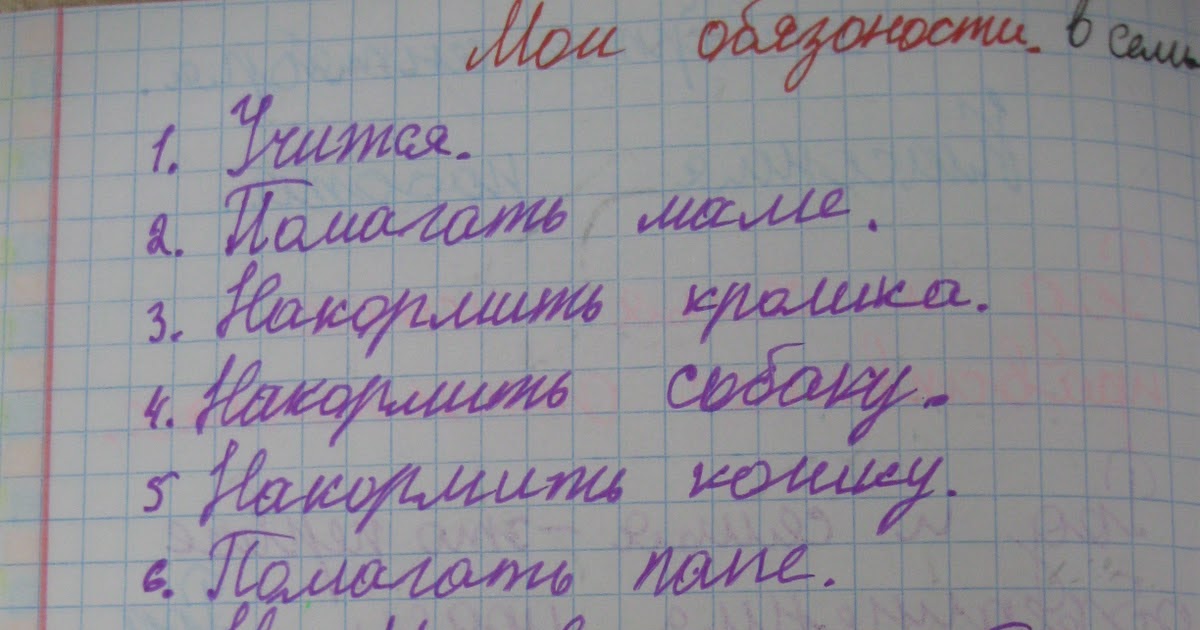 Мои обязоности. в
1. Учится.
2. Помагать маме.
3. Накормить кролика.
4. Накормить собаку.
5 Накормить кошку.
6. Помагать папе.